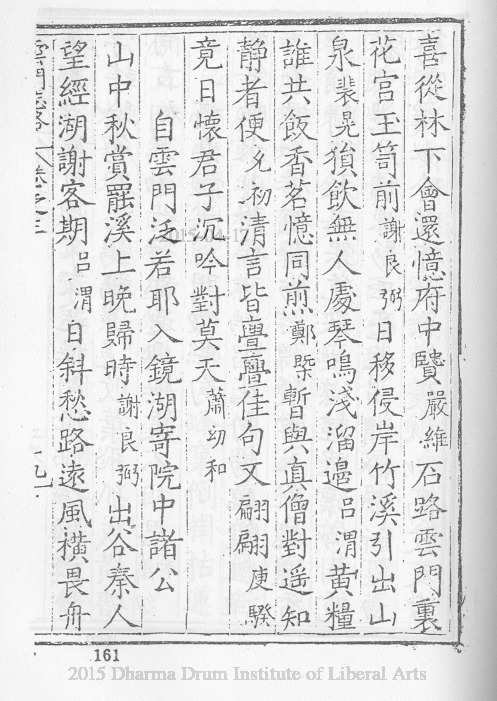 喜從林下會還憶府中賢嚴維石路雲門裏
花宮玉笥前謝良弼日移侵岸竹溪引出山
泉裴晃猿飲無人處琴鳴淺溜邊呂渭黄糧
誰共飯香茗憶同煎鄭槩暫與真僧對遥知
静者便允初清言皆亹亹佳句又翩翩庾騤
竟日懷君子沉吟對莫天蕭幼和
自雲門泛若耶入鏡湖寄院中諸公
山中秋賞罷溪上晚歸時謝良弼出谷秦人
望經湖謝客期呂渭日斜愁路遠風横畏舟
雲門志略 卷之三
161
2015 Dharma Drum Institute of Liberal Arts